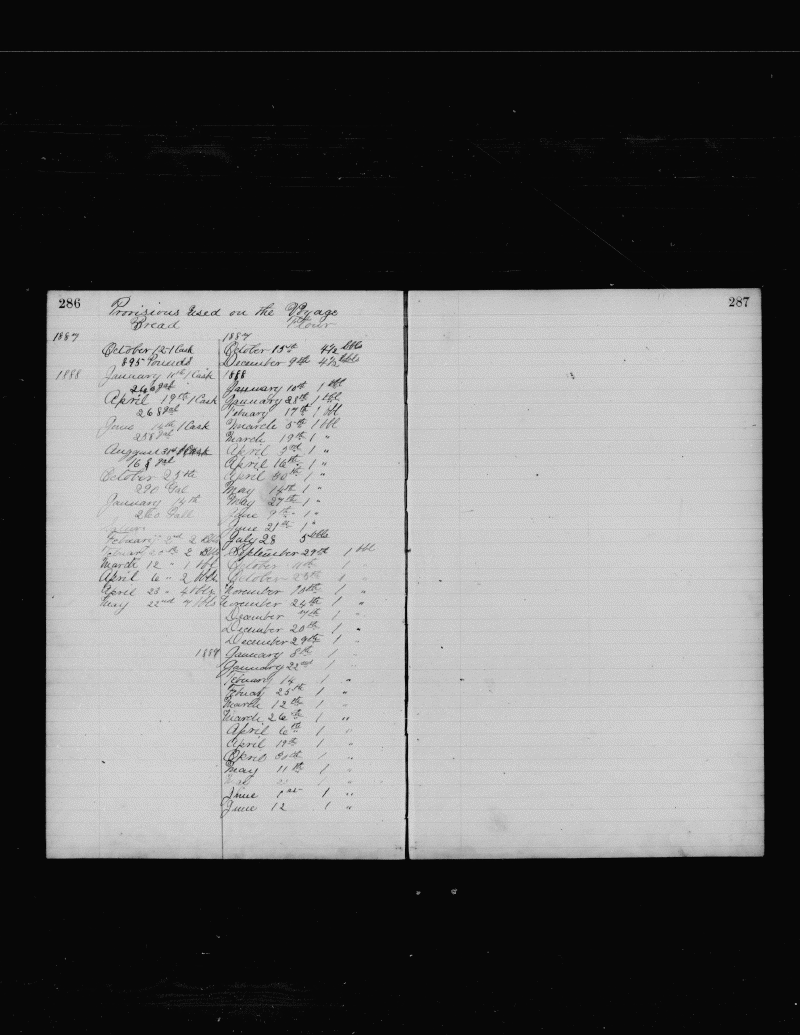 286
Provisions Used on the Voyage
Bread
1887
October 12 1 Cask
895 Pounds
1888
January 11th 1 Cask
246 gal
April 19th 1 Cask
268 gal
June 14th 1 Cask
258 gal
August 31st 1 Cask
168 gal
October 25th
290 Gal
January 14th
260 Gall
February 2nd 2 Bbls
February 20th 2 Bbls
March 12 " 1 Bbl
April 6 " 2 bbls
April 23 " 4 bbls
May 22nd 7 bbls
Flour
1887
October 15th 4½ bbls
December 9th 4½ bbls
1888
January 10th 1 bbl
January 28th 1 bbl
February 17th 1 bbl
March 5th 1 bbl
March 19th 1 "
April 3rd 1 "
April 16th 1 "
April 30th 1 "
May 14th 1 "
May 27th 1 "
June 9th 1 "
June 21th 1 "
July 28 5 bbls
September 27th 1 bbl
October 11th 1 "
October 25th 1 "
November 10th 1 "
November 24th 1 "
December 7th 1 "
December 20th 1 "
December 29th 1 "
1889 January 8th 1 "
January 22nd 1 "
Febuary 14 1 "
Febuay 25th 1 "
March 12th 1 "
March 26th 1 "
April 6th 1 "
April 19th 1 "
April 30th 1 "
May 11th 1 "
May 1 "
June 1st 1 "
June 12 1 "
287